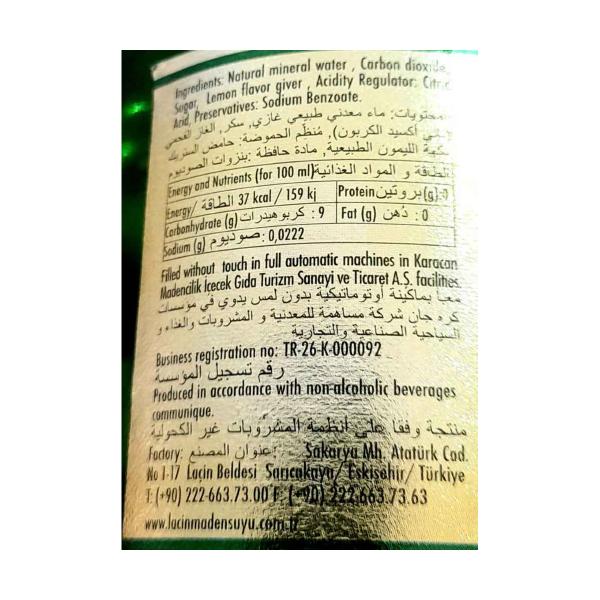 Ingredients: Natural mineral water , Carbon dioxide,
Sugar, Lemon flavor giver , Acidity Regulator: Citric
Acid, Preservatives: Sodium Benzoate.
محتويات: ماء معدني طبيعي غازي, سكر, الغاز الفحمي
(ثاني أكسيد الكربون), مُنظّم الحموضة: حامض الستريك
نكهة الليمون الطبيعية, مادة حافظة :بنزوات الصوديوم
Energy and Nutrients (for 100 ml) الطاقة و المواد الغذائية
Energy/ الطاقة / 37 kcal / 159 kj Protein بروتين (g):0
Carbonhydrate (g) كربوهيدرات : 9 Fat (g) دُهن : 0
Sodium (g) صوديوم : 0,0222
Filled without touch in full automatic machines in Karacan
Madencilik İçecek Gıda Turizm Sanayi ve Ticaret A.Ş. facilities.
معبأ بماكينة أوتوماتيكية بدون لمس يدوي في مؤسسات
كره جان شركة مساهمة للمعدنية و المشروبات والغذاء و
السياحية الصناعية والتجارية
Business registration no: TR-26-K-000092
رقم تسجيل المؤسسة
Produced in accordance with non-alcoholic beverages
communique.
منتجة وفقا على أنظمة المشروبات غير الكحولية
Factory: عنوان المصنع: Sakarya Mh. Atatürk Cad.
No 1-17 Laçin Beldesi Sarıcakaya/ Eskişehir/ Türkiye
T: (+90) 222.663.73.00 F. (+90) 222.663.73.63
www.lacinmadensuyu.com.tr